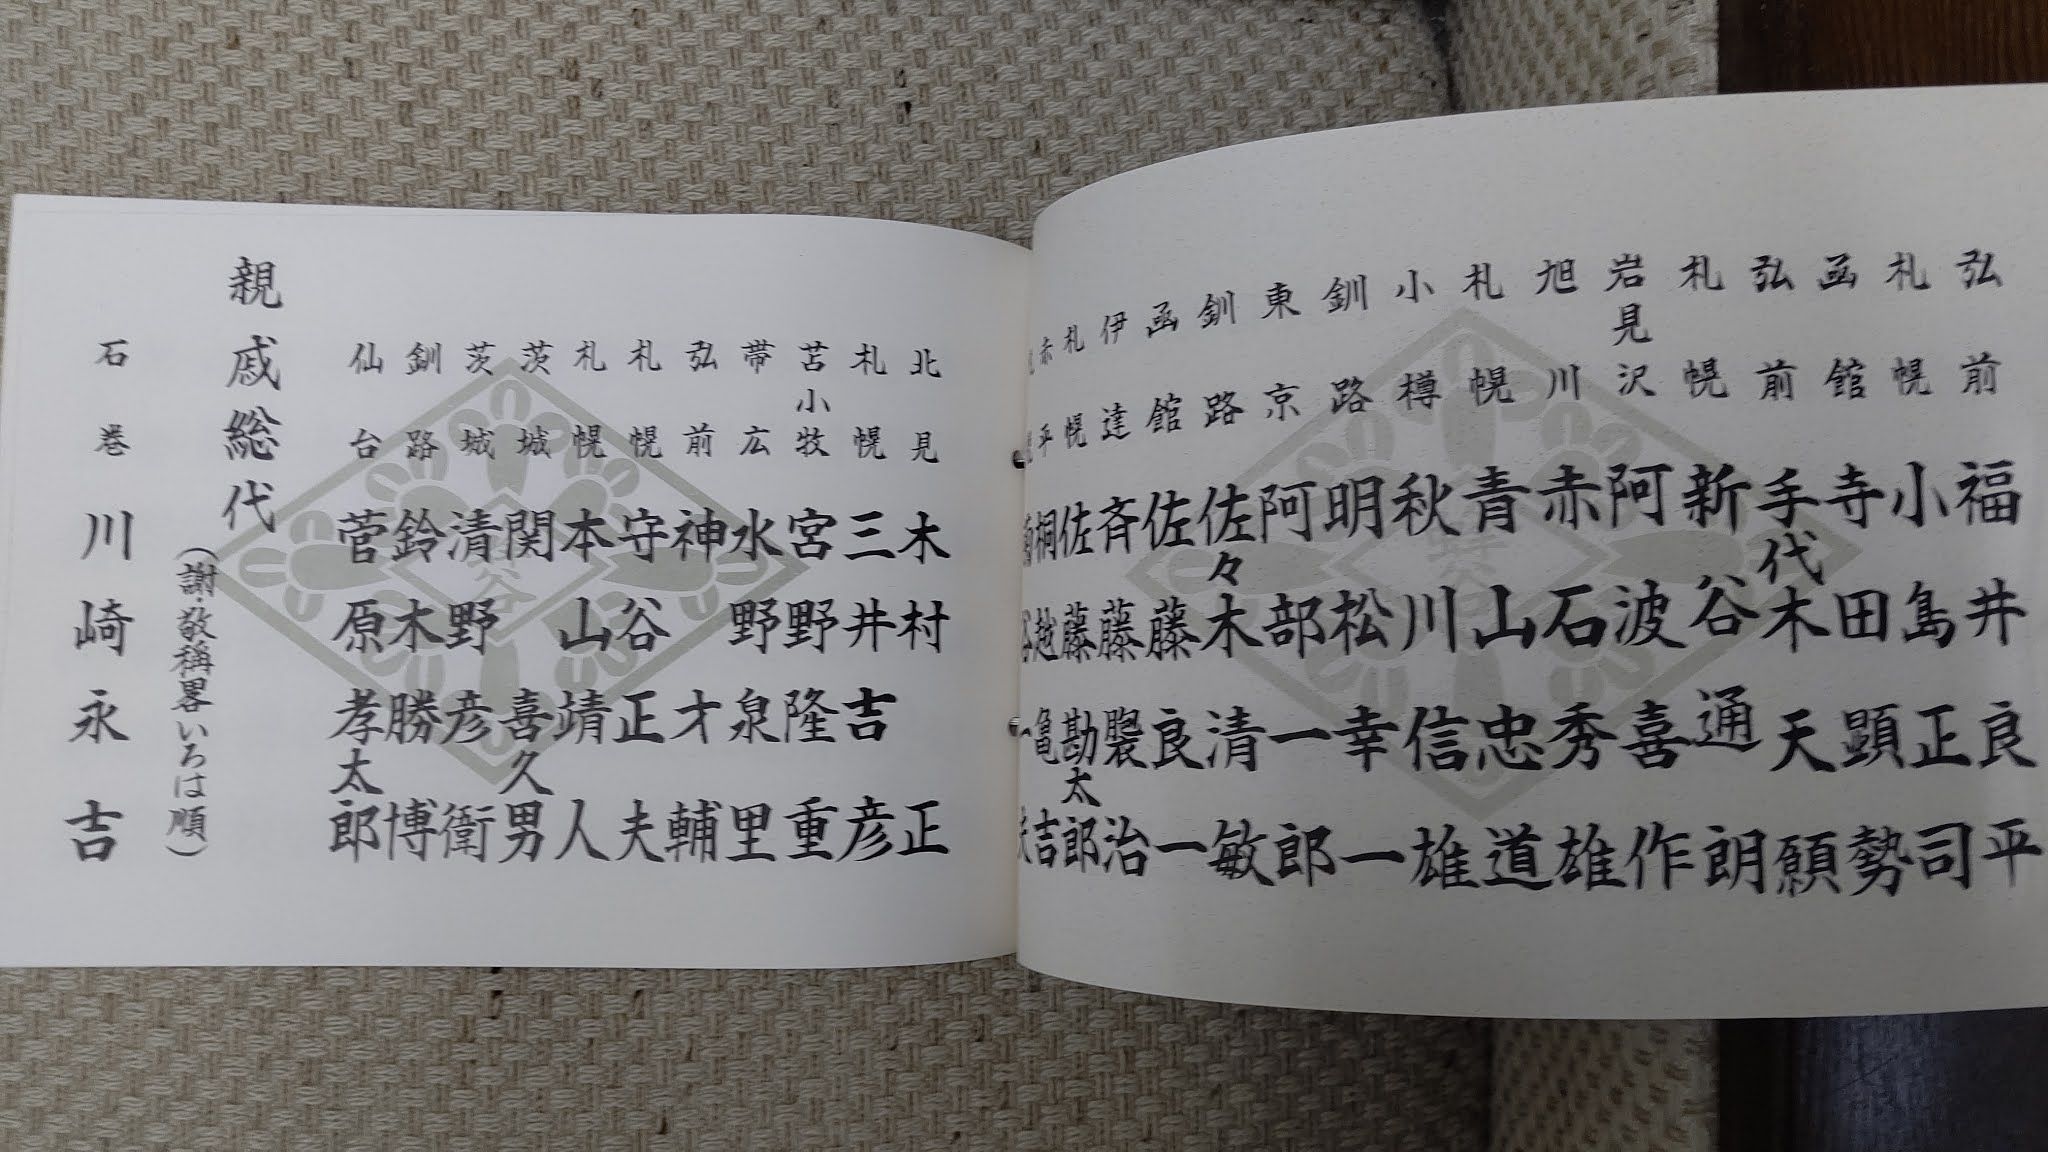 弘前 福井良平
札幌 小島正司
函館 寺田顕勢
弘前 手代木天願
札幌 新谷通朗
岩見沢 阿波喜作
旭川 赤石秀雄
札幌 青山忠道
小樽 秋川信雄
釧路 明松幸一
東京 阿部一郎
釧路 佐々木清敏
函館 佐藤良一
伊達 斉藤襲治
札幌 佐藤勘太郎
赤平 桐越亀吉
北見 木村正
札幌 三井吉彦
苫小牧 宮野隆重
帯広 水野泉里
弘前 神才輔
札幌 守谷正夫
札幌 本山靖人
茨城 関喜久男
茨城 清野彦衛
釧路 鈴木勝博
仙台 菅原孝太郎
親戚総代
(謝・敬稱畧いろは順)
石巻 川崎永吉